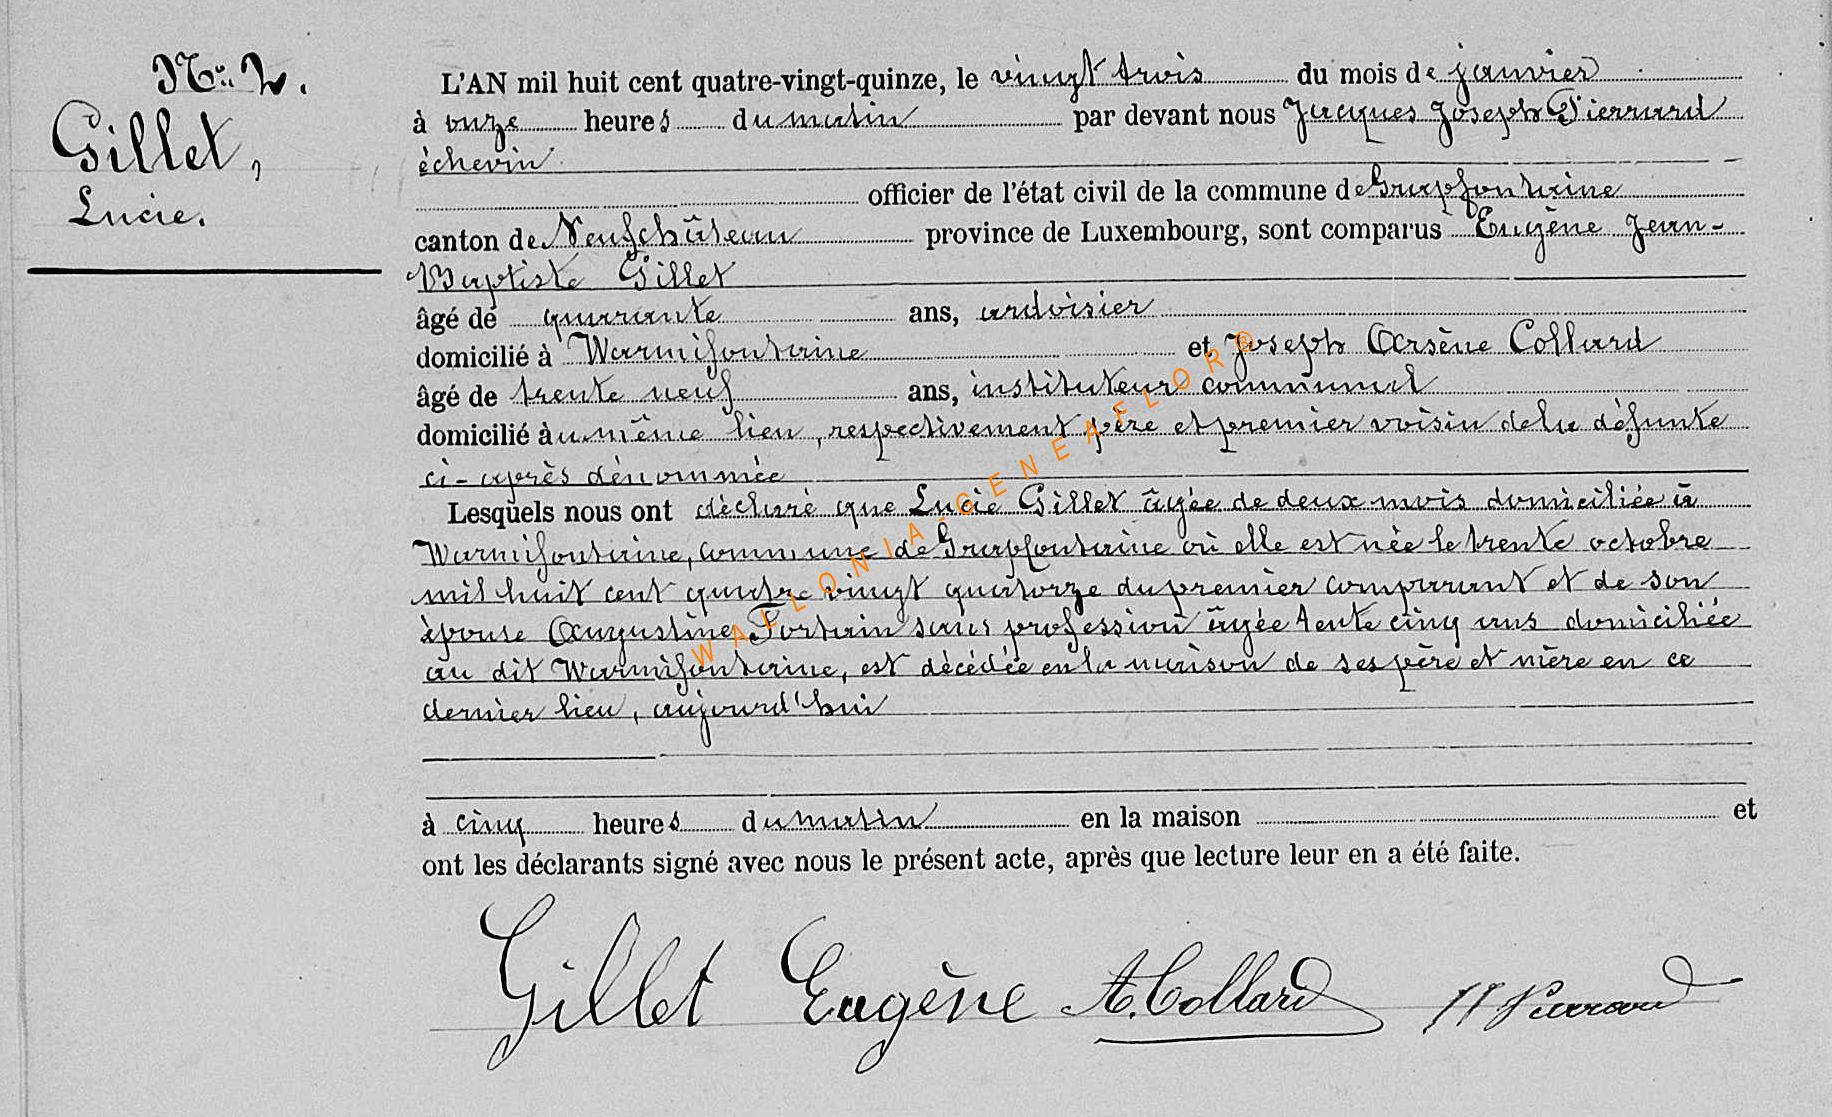 No. 2.
Gillet,
Lucie.
L'AN mil huit cent quatre-vingt-quinze, le vingt trois du mois de janvier
à onze heures du matin par devant nous Jacques Joseph Pierrard
échevin
officier de l'état civil de la commune de Grapfontaine
canton de Neufchâteau province de Luxembourg, sont comparus Eugène Jean-
Baptiste Gillet
âgé de quarante ans, ardoisier
domicilié à Warmifontaine et Joseph Arsène Collard
âgé de trente neuf ans, instituteur communal
domicilié au même lieu, respectivement père et premier voisin de la défunte
ci-après dénommée
Lesquels nous ont déclaré que Lucie Gillet âgée de deux mois domiciliée à
Warmifontaine, commune de Grapfontaine où elle est née le trente octobre
mil huit cent quatre vingt quatorze du premier comparant et de son
épouse Augustine Fortain sans profession âgée tente cinq ans domiciliée
au dit Warmifontaine, est décédée en la maison de ses père et mère en ce
dernier lieu, aujourd'hui
à cinq heures du matin en la maison et
ont les déclarants signé avec nous le présent acte, après que lecture leur en a été faite.
Gillet Eugène A. Collard JJ Pierrard
WALLONIA-GENEAFLORB